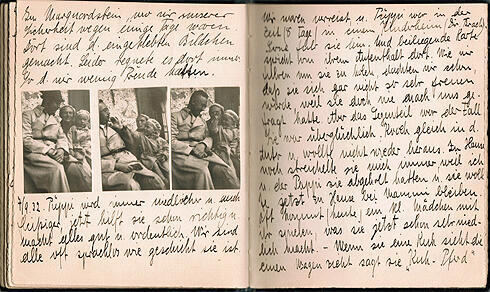 In Marquardstein, wo wir unserer
Sicherheit wegen einige Tage waren.
Dort sind d. eingeklebten Bildchen
gemacht. Leider regnete es dort immer.
So d. wir wenig Freude hatten.
7/9.32. Püppi wird immer niedlicher u. auch
fleissiger, jetzt hilft sie schon richtig u.
macht alles gut u. ordentlich. Wir sind
alle oft sprachlos wie geschickt sie ist.
Wir waren verreist u. Püppi war in der
Zeit 18 Tage in einem Kinderheim.
sie hin. Und beiliegende Karte
spricht von ihrem Aufenthalt dort. Wie wir
kamen um sie zu holen, dachten wir schon
daß sie sich gar nicht so sehr freuen
würde, weil sie doch nie nach uns ge-
fragt hatte aber das Gegenteil war der Fall
Sie war überglücklich. Kroch gleich in d.
Auto u. wollte nicht wieder heraus. Zu Hause
noch streichelte sie mich immer weil ich
u. der Pappi sie abgeholt hatten u. sie woll
te jetzt zu Hause bei Mammi bleiben.
Oft kommt heute ein kl. Mädchen mit
ihr spielen, was sie jetzt schon sehr nied-
lich macht. – Wenn sie eine Kuh sieht die
einen Wagen zieht sagt sie „Kuh-Pferd"